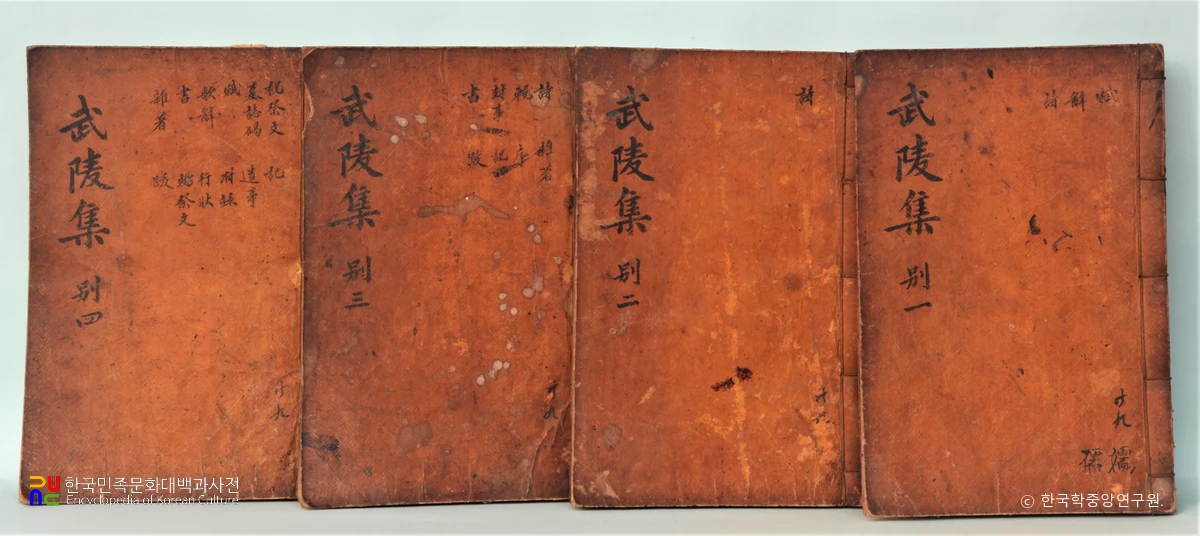 武陵集 別一
賦
辭
詩
共九
武陵集 別二
詩
武陵集 別三
詩 雜著
輓 序
封事 記
書 跋
武陵集 別四
祝祭文 記
墓誌碣 遺事
賦 附錄
歌辭 行狀
書 賜祭文
雜著 跋
한국민족문화대백과사전
Encyclopedia of Korean Culture
© 한국학중앙연구원.